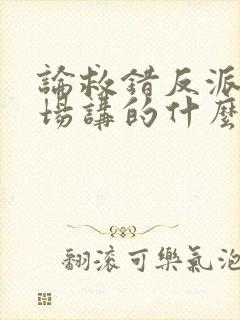 論救錯反派
場講的什麼
翻滾可樂氣泡